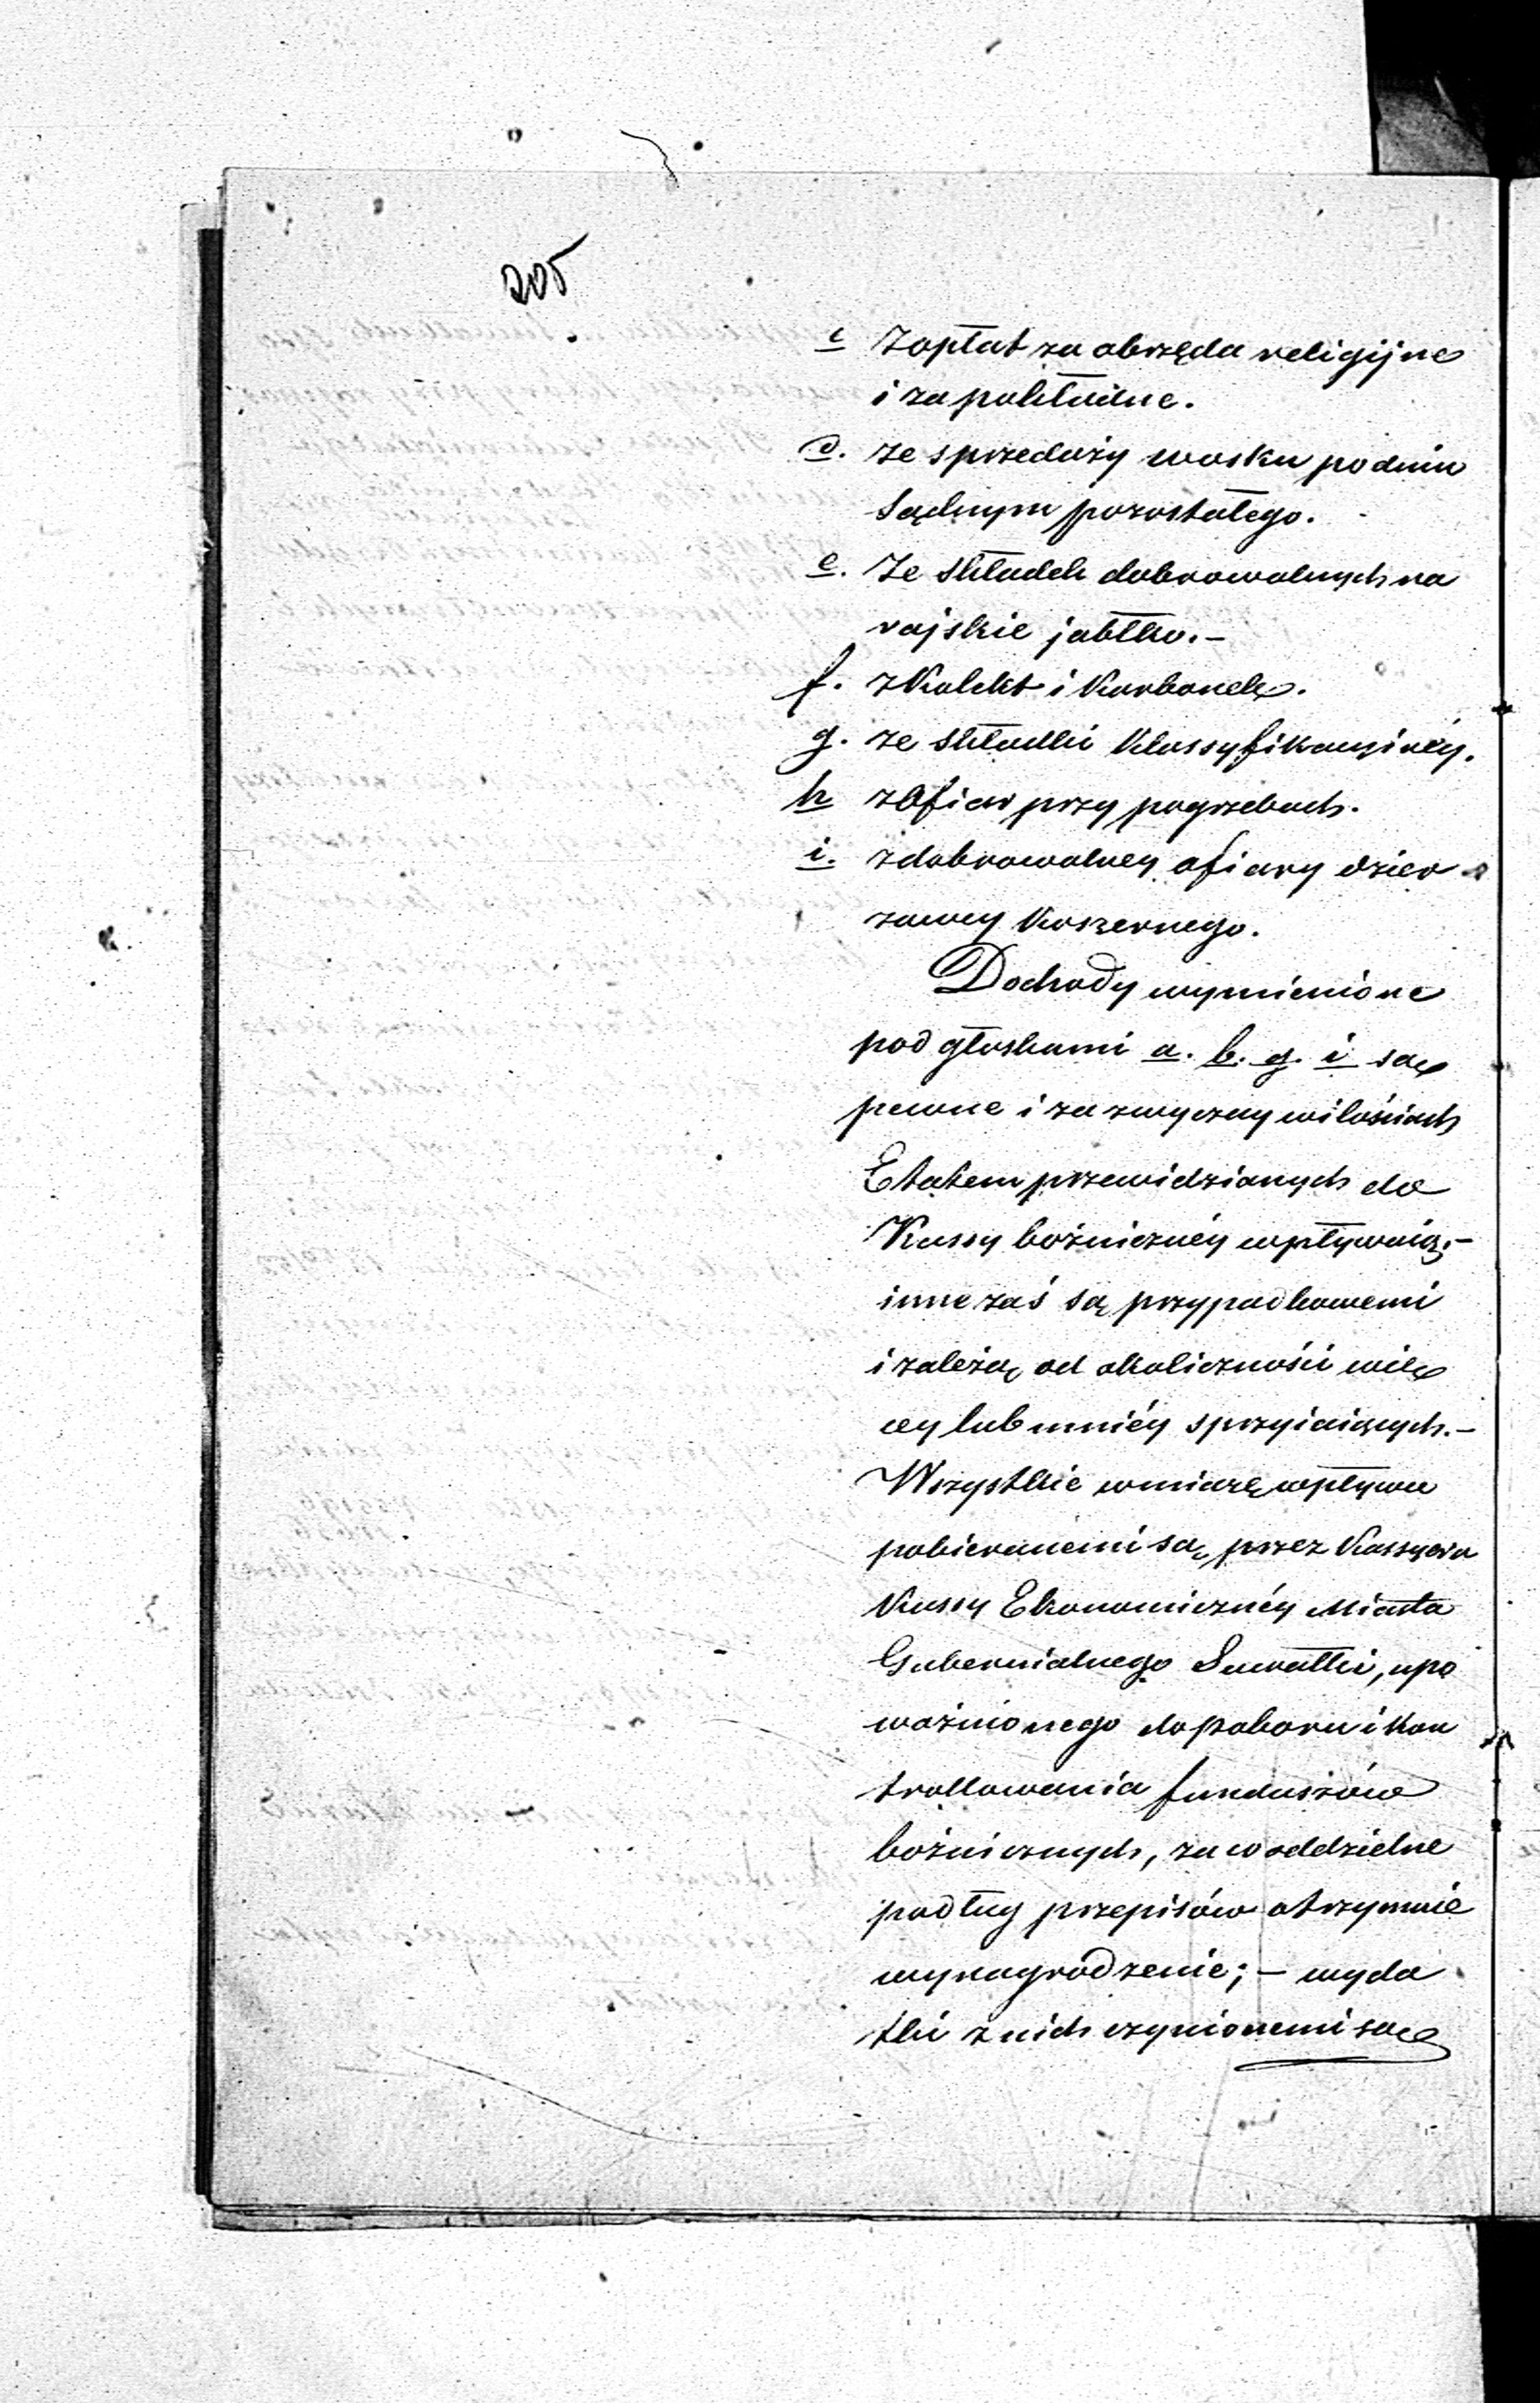 205
c Z opłat za obrzęda religijne
i za pokładne.
d. ze sprzedaży wosku po dniu
Sądnym pozostałego.
e. Ze składek dobrowolnych na
rajskie jabłko.-
f. z Kolekt i Karbonek.
g. ze składki klassyfikacyinéy.
h z Ofiar przy pogrzebach.
i. z dobrowolney ofiary dzier
zawcy Koszernego.
Dochody wymienione
pod głoskami a. b. g. i są
pewne i zazwyczay w ilościach
Etatem przewidzianych do
Kassy bożnicznéy wpływaią;-
inne zaś są przypadkowemi
i zależą od okoliczności wię
cey lub mniéy sprzyiaiących.-
Wszystkie w miarę wpływu
pobieranemi są, przez Kassyera
Kassy Ekonomicznéy Miasta
Gubernialnego Suwałki, upo
ważnionego do poboru i kon
trollowania funduszów
bożnicznych, za co oddzielne
podług przepisów otrzymuie
wynagrodzenie; - wyda
tki z nich czynionemi są